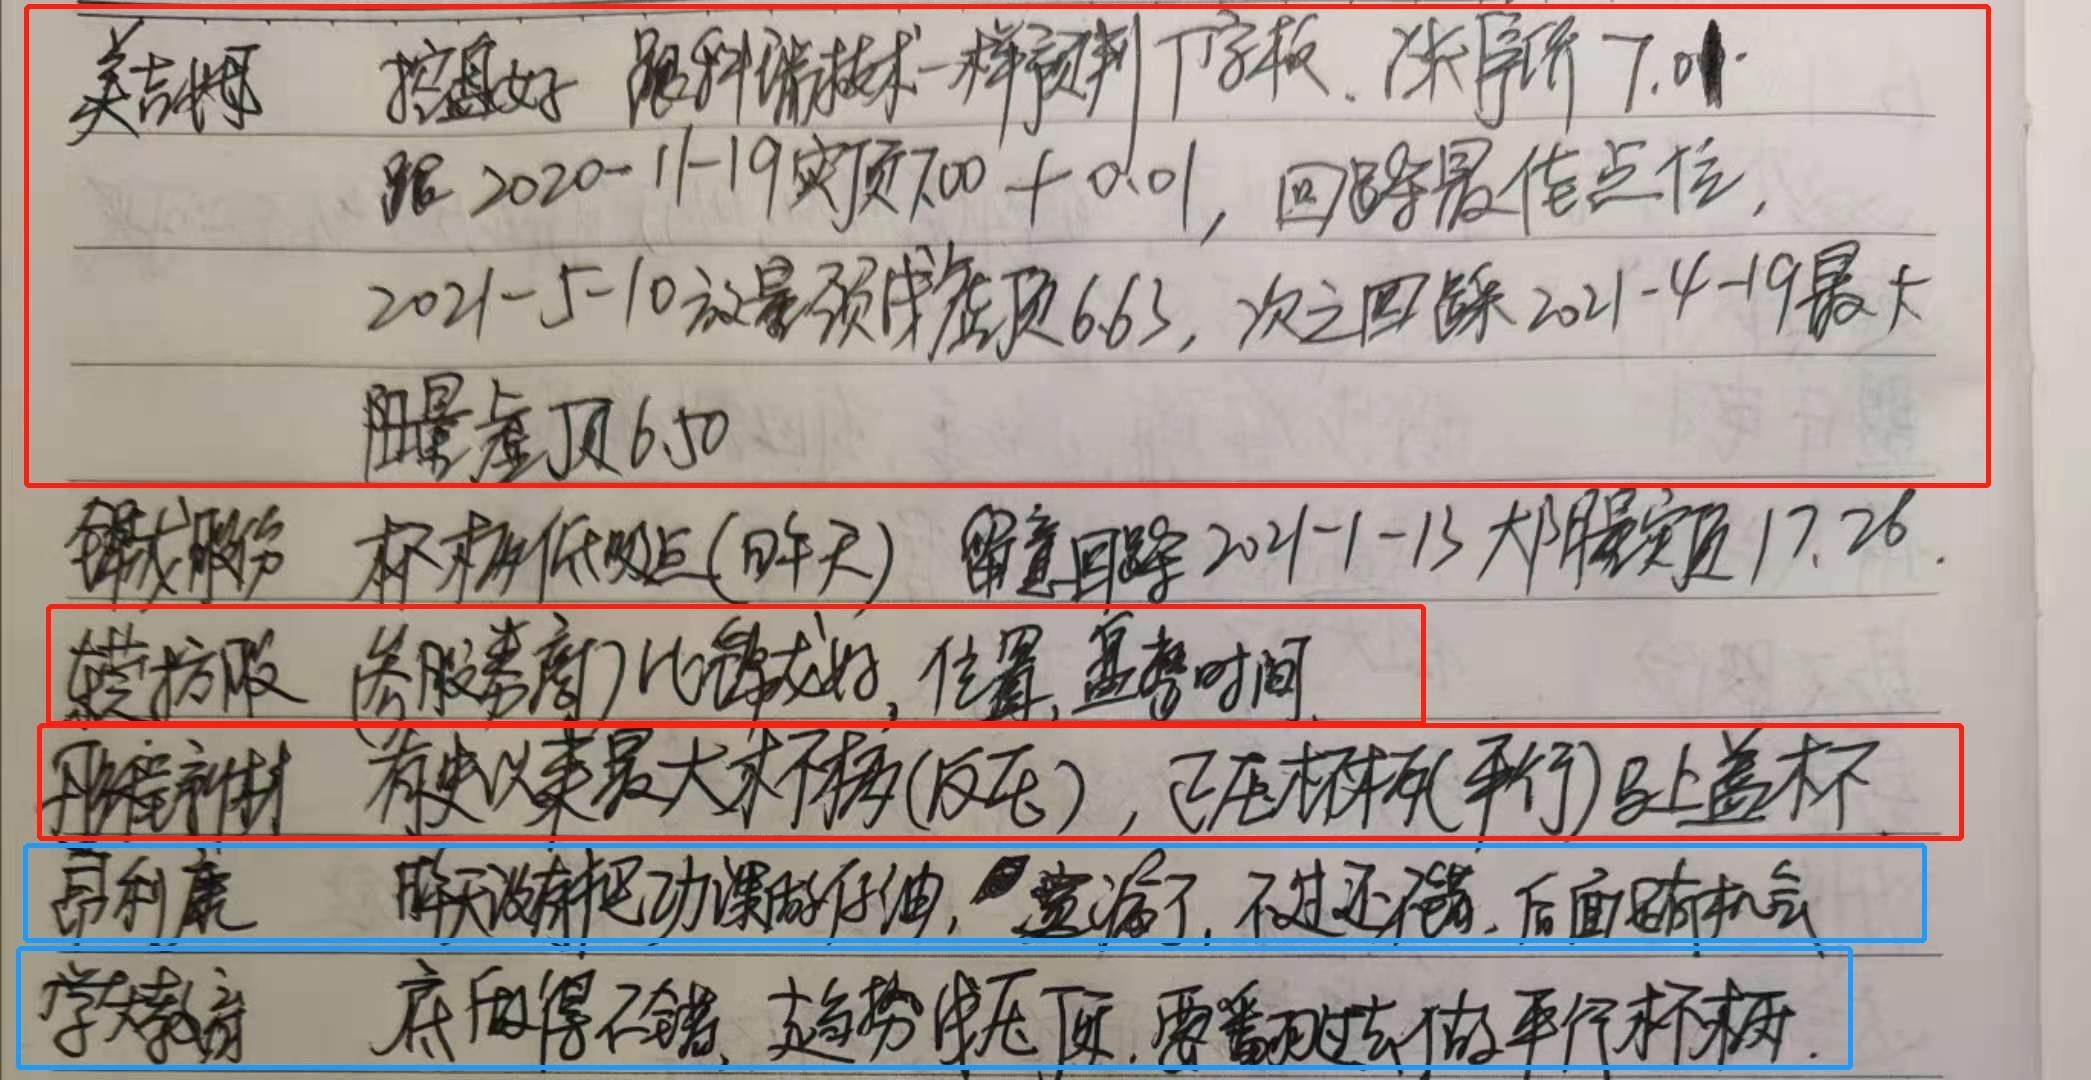 美吉姆 控盘好 跟科瑞技术一样预判丁字板. 涨停价 7.01.
跟 2020-11-19实顶7.00 + 0.01, 回踩最佳点位,
2021-5-10放量颈线虚顶6.63, 次之回踩 2021-4-19最大
阳量虚顶 6.50
锋龙股份 杯柄低吸点(昨天) 留意回踩 2021-1-13 大阳量实顶 17.26.
模仿股 (参股券商) 比锋龙好, 位置, 盘整时间.
新材 有史以来最大杯柄(反压), 已在杯柄(平行)马上盖杯.
昂利康 昨天没有把功课做仔细, 遗漏了, 不过还不错. 后面有机会
学大教育 底做得不错, 趋势线压顶. 要翻过去做平行杯柄.